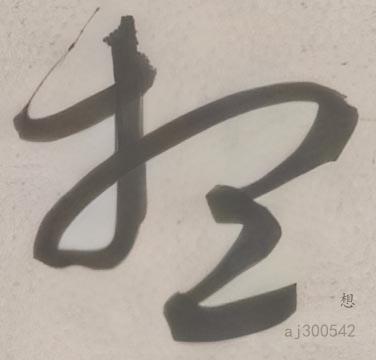 想
想
aj300542